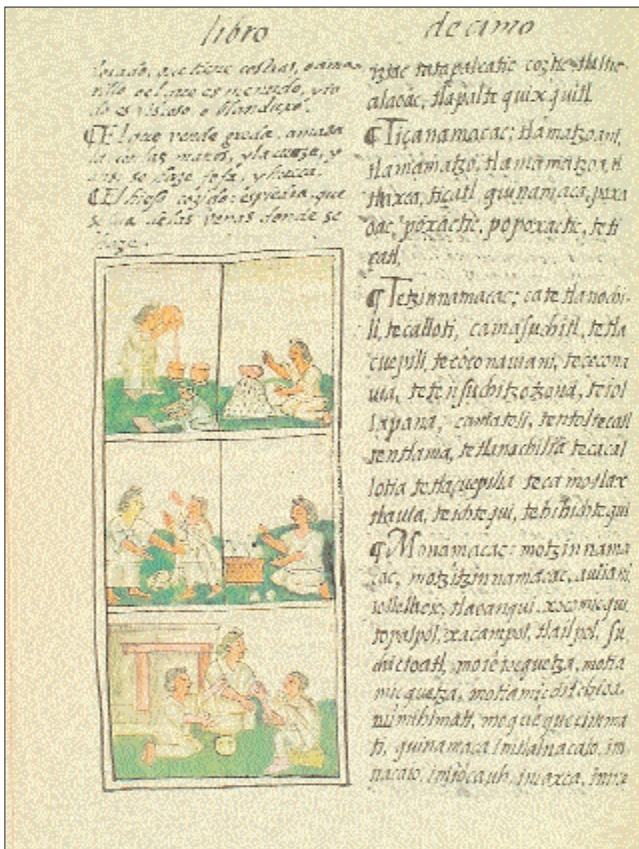 libro
decimo
que tiene costras, o ama
rillo
do es viscoso o blandujo.
¶ El que vende greda, amasa
la con las manos, y la cueze, y
assi, se haze fofa, y hueca.
¶ El hieso cozido: espiedra, que
de las venas donde se
haze.
iztac tatapalcatic coztic
alaoac, tlapalte quixquitl
¶ Tiçanamacac: tlamatzoani,
tlamamatzo, tlamamatzoa, tl
tlaxca, tiçatl quinamaca, poxa
oac, poxactic, popoxactic, teti
çatl.
¶ Tetzinnamacac: ca te tlanochi-
li, tecalloti, camasuchitl, tetla
cuepili, tecoconauiani, tececona
uia, tetensuchitzotzona, teiol
lapana, camatoli, tentoltecatl
tentlama, tetlanachilia tecacal
lotia tetlacuepilia tecamotlax
tlaula, teichtequi, tehichichtequi
¶ Monamacac: motzinnama
cac, motzitzinnamacac, auiani
tlaoanqui, xocomicqui
topalpol, xacampol, tlailpol, su
chictoatl, motetequetza, motla
micquetza,
nimihimati, moquequecinma
ti, quinamaca in itlalnacaio, in
nacaio, initocauh, in iaxca,